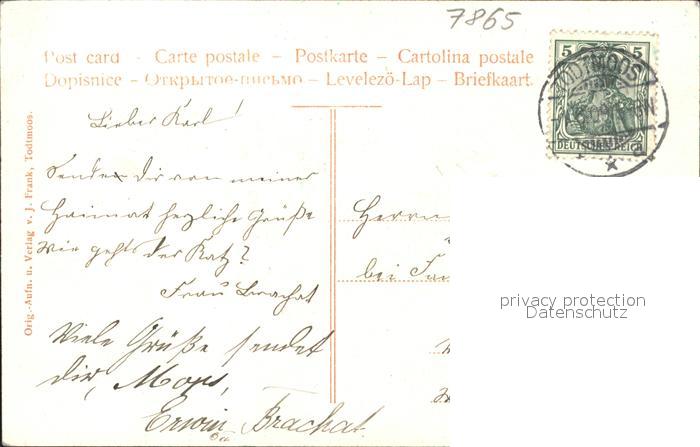 7865
Post card - Carte postale - Postkarte - Cartolina postale
Dopisnice - Открытое-письмо - Levelező-Lap - Briefkaart.
Lieber Karl!
Sende Dir von meiner
Heimat herzliche Grüße
wie gehts der Katz?
Frau Brachat
Viele Grüße sendet
dir, Mops,
Erwin Brachat
Orig.-Aufn. u. Verlag v. J. Frank, Todtmoos.
5 5
TODTMOOS
DEUTSCHES REICH
Herrn
bei
privacy protection
Datenschutz